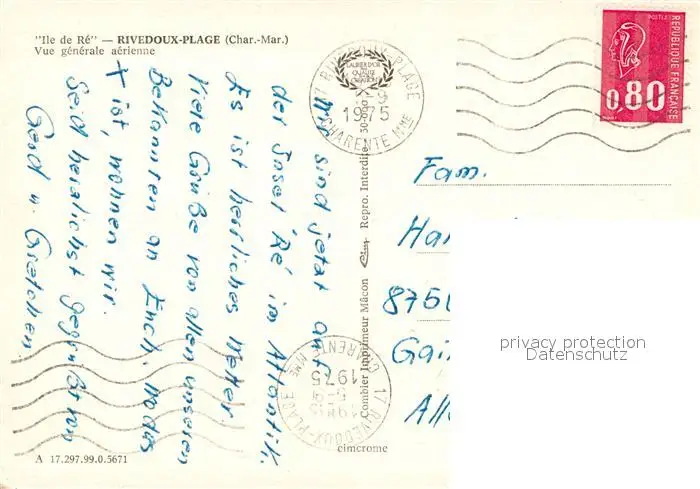 "Ile de Ré" — RIVEDOUX-PLAGE (Char.-Mar.)
Vue générale aérienne
17 RIVEDOUX-PLAGE
1975
CHARENTE Mme
LAURIER D'OR
QUALITÉ
RÉPUBLIQUE FRANÇAISE
POSTES
0,80
Wir sind jetzt auf
der Insel 'Ré' im Atlantik.
Es ist herrliches Wetter.
Viele Grüße von allen unseren
Bekannten an Euch. Wo das
X ist, wohnen wir.
Seid herzlichst gegrüßt von
Gerd u. Gretchen.
Fam.
Ha
875
Gai
Al
privacy protection
Datenschutz
Combier Imprimeur Mâcon Cim Repro. Interdite
17 RIVEDOUX-PLAGE
19H15
5-9
1975
CHARENTE Mme
A 17.297.99.0.5671
cimcrome